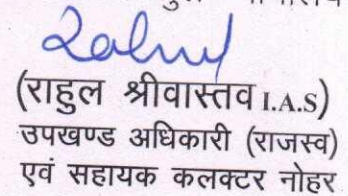 (राहुल श्रीवास्तव I.A.S)
उपखण्ड अधिकारी (राजस्व)
एवं सहायक कलक्टर नोहर